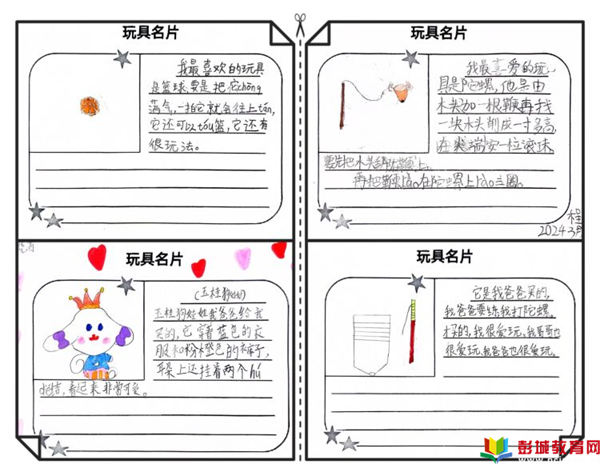 玩具名片
我最喜欢的玩具
是篮球,要是把它chōng
满气,一拍它就会往上tán,
它还可以tóu篮,它还有
很玩法。
玩具名片
我最喜爱的玩
具是陀螺,他是由
木头加一根鞭再找
一块木头削成一寸多高,
在尖端安一粒滚珠。
要先把木头
再把
2024.3月
玩具名片
(玉桂狗)
玉桂狗
买的,它穿着蓝色的衣
服和粉橙色的裤子,
耳朵上还挂着两个hú
蝶结,看起来非常可爱。
玩具名片
它是我爸爸买的,
我爸爸要练我打陀螺,
买的,我很爱玩,我哥哥也
很爱玩,我爸爸也很爱玩。
彭城教育网